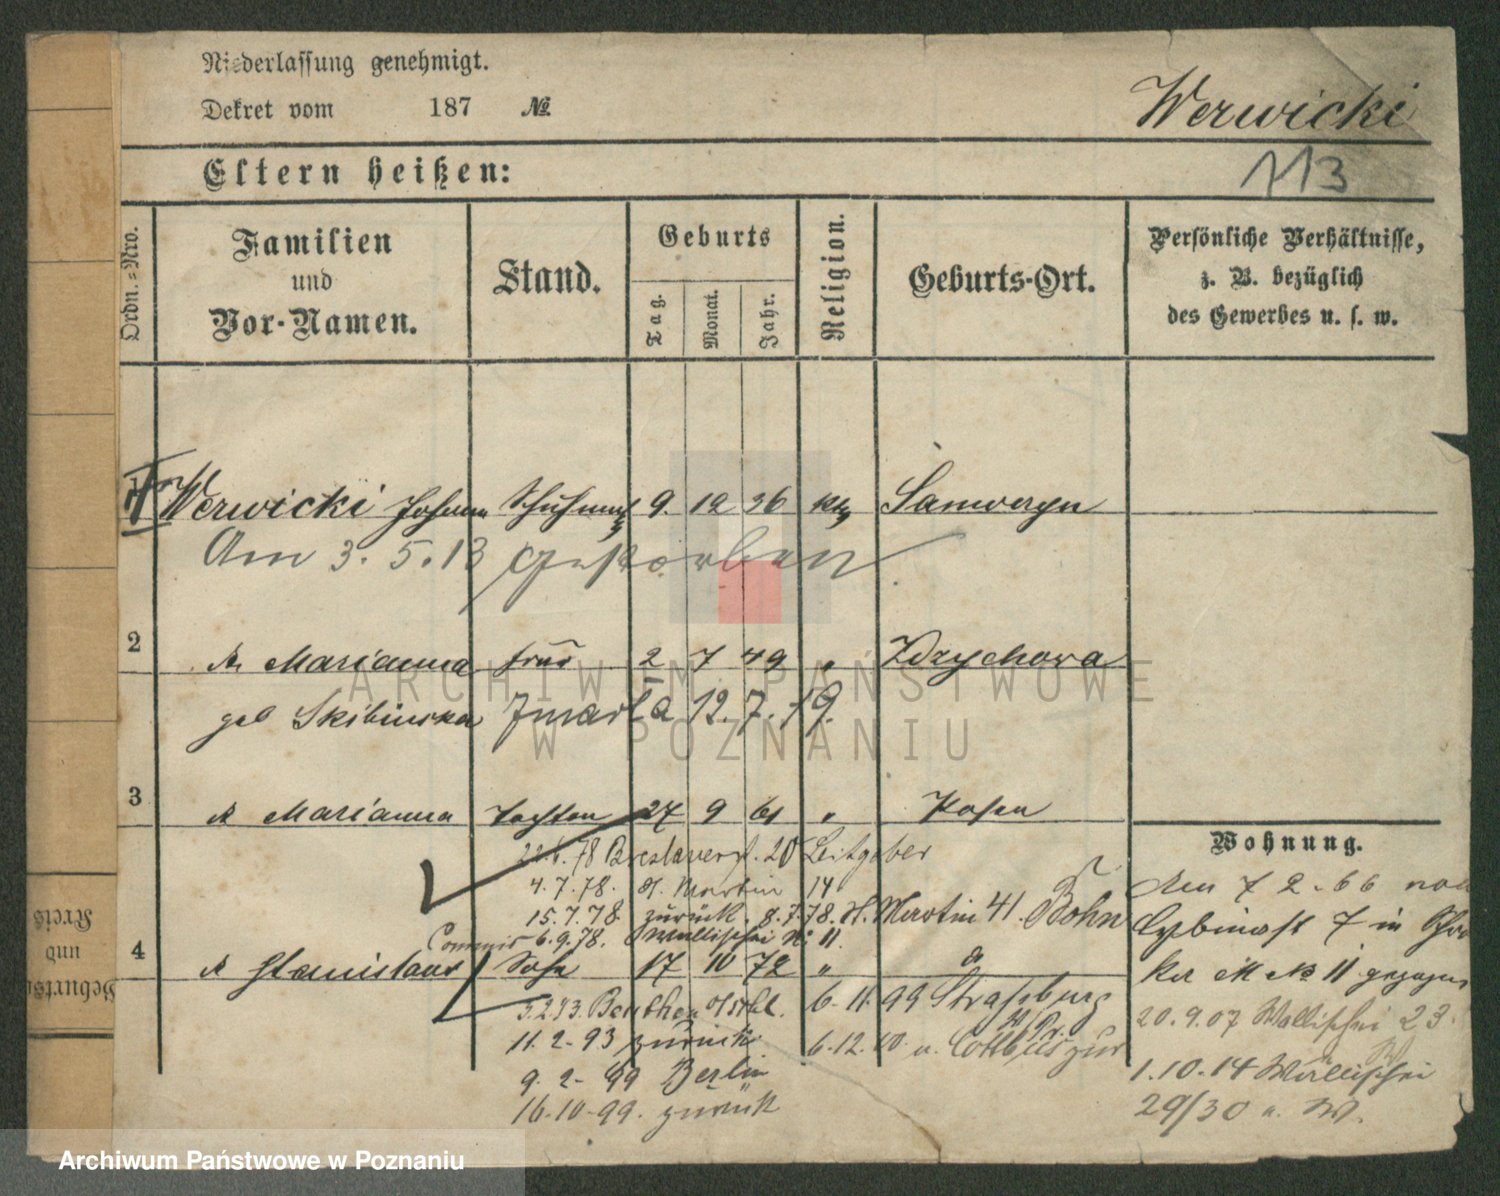 Niederlassung genehmigt.
Dekret vom 187 №
Werwicki
Eltern heißen:
113
Ordn.-Nro.
Familien
und
Vor-Namen.
Stand.
Geburts
Tag.
Monat.
Jahr.
Religion.
Geburts-Ort.
Persönliche Verhältnisse,
z. B. bezüglich
des Gewerbes u. s. w.
1 Werwicki Johann 9. 12 36 kth
Am 3. 5. 13 gestorben
2 Marianna frau 2 7 49 " Zdrychowa
geb Skibinska 12. 7. 19.
3 Marianna Tochter 27 9 61 " Posen
Wohnung.
78 Breslauerst. 20 Leitgeber
4. 7. 78. St. Martin 14
15. 7. 78 zurück. 8. 7. 78. St. Martin 41. Bohn
Commis 6. 9. 78. Wallischei No 11.
4 Stanislaus Sohn 17 10 72 "
Am 7 2 66
Cybinast 7 in
11 gezogen
20. 9. 07 Wallischei 23
1. 10. 14 Wallischei
29/30
93. Beuthen
11. 2. 93 zurück
9. 2. 99 Berlin
16. 10. 99. zurück
6. 11. 99 Strasburg
W Pr.
6. 12. Cottbus zur
Geburts-
und
Kreis
ARCHIWUM PAŃSTWOWE
W POZNANIU
Archiwum Państwowe w Poznaniu